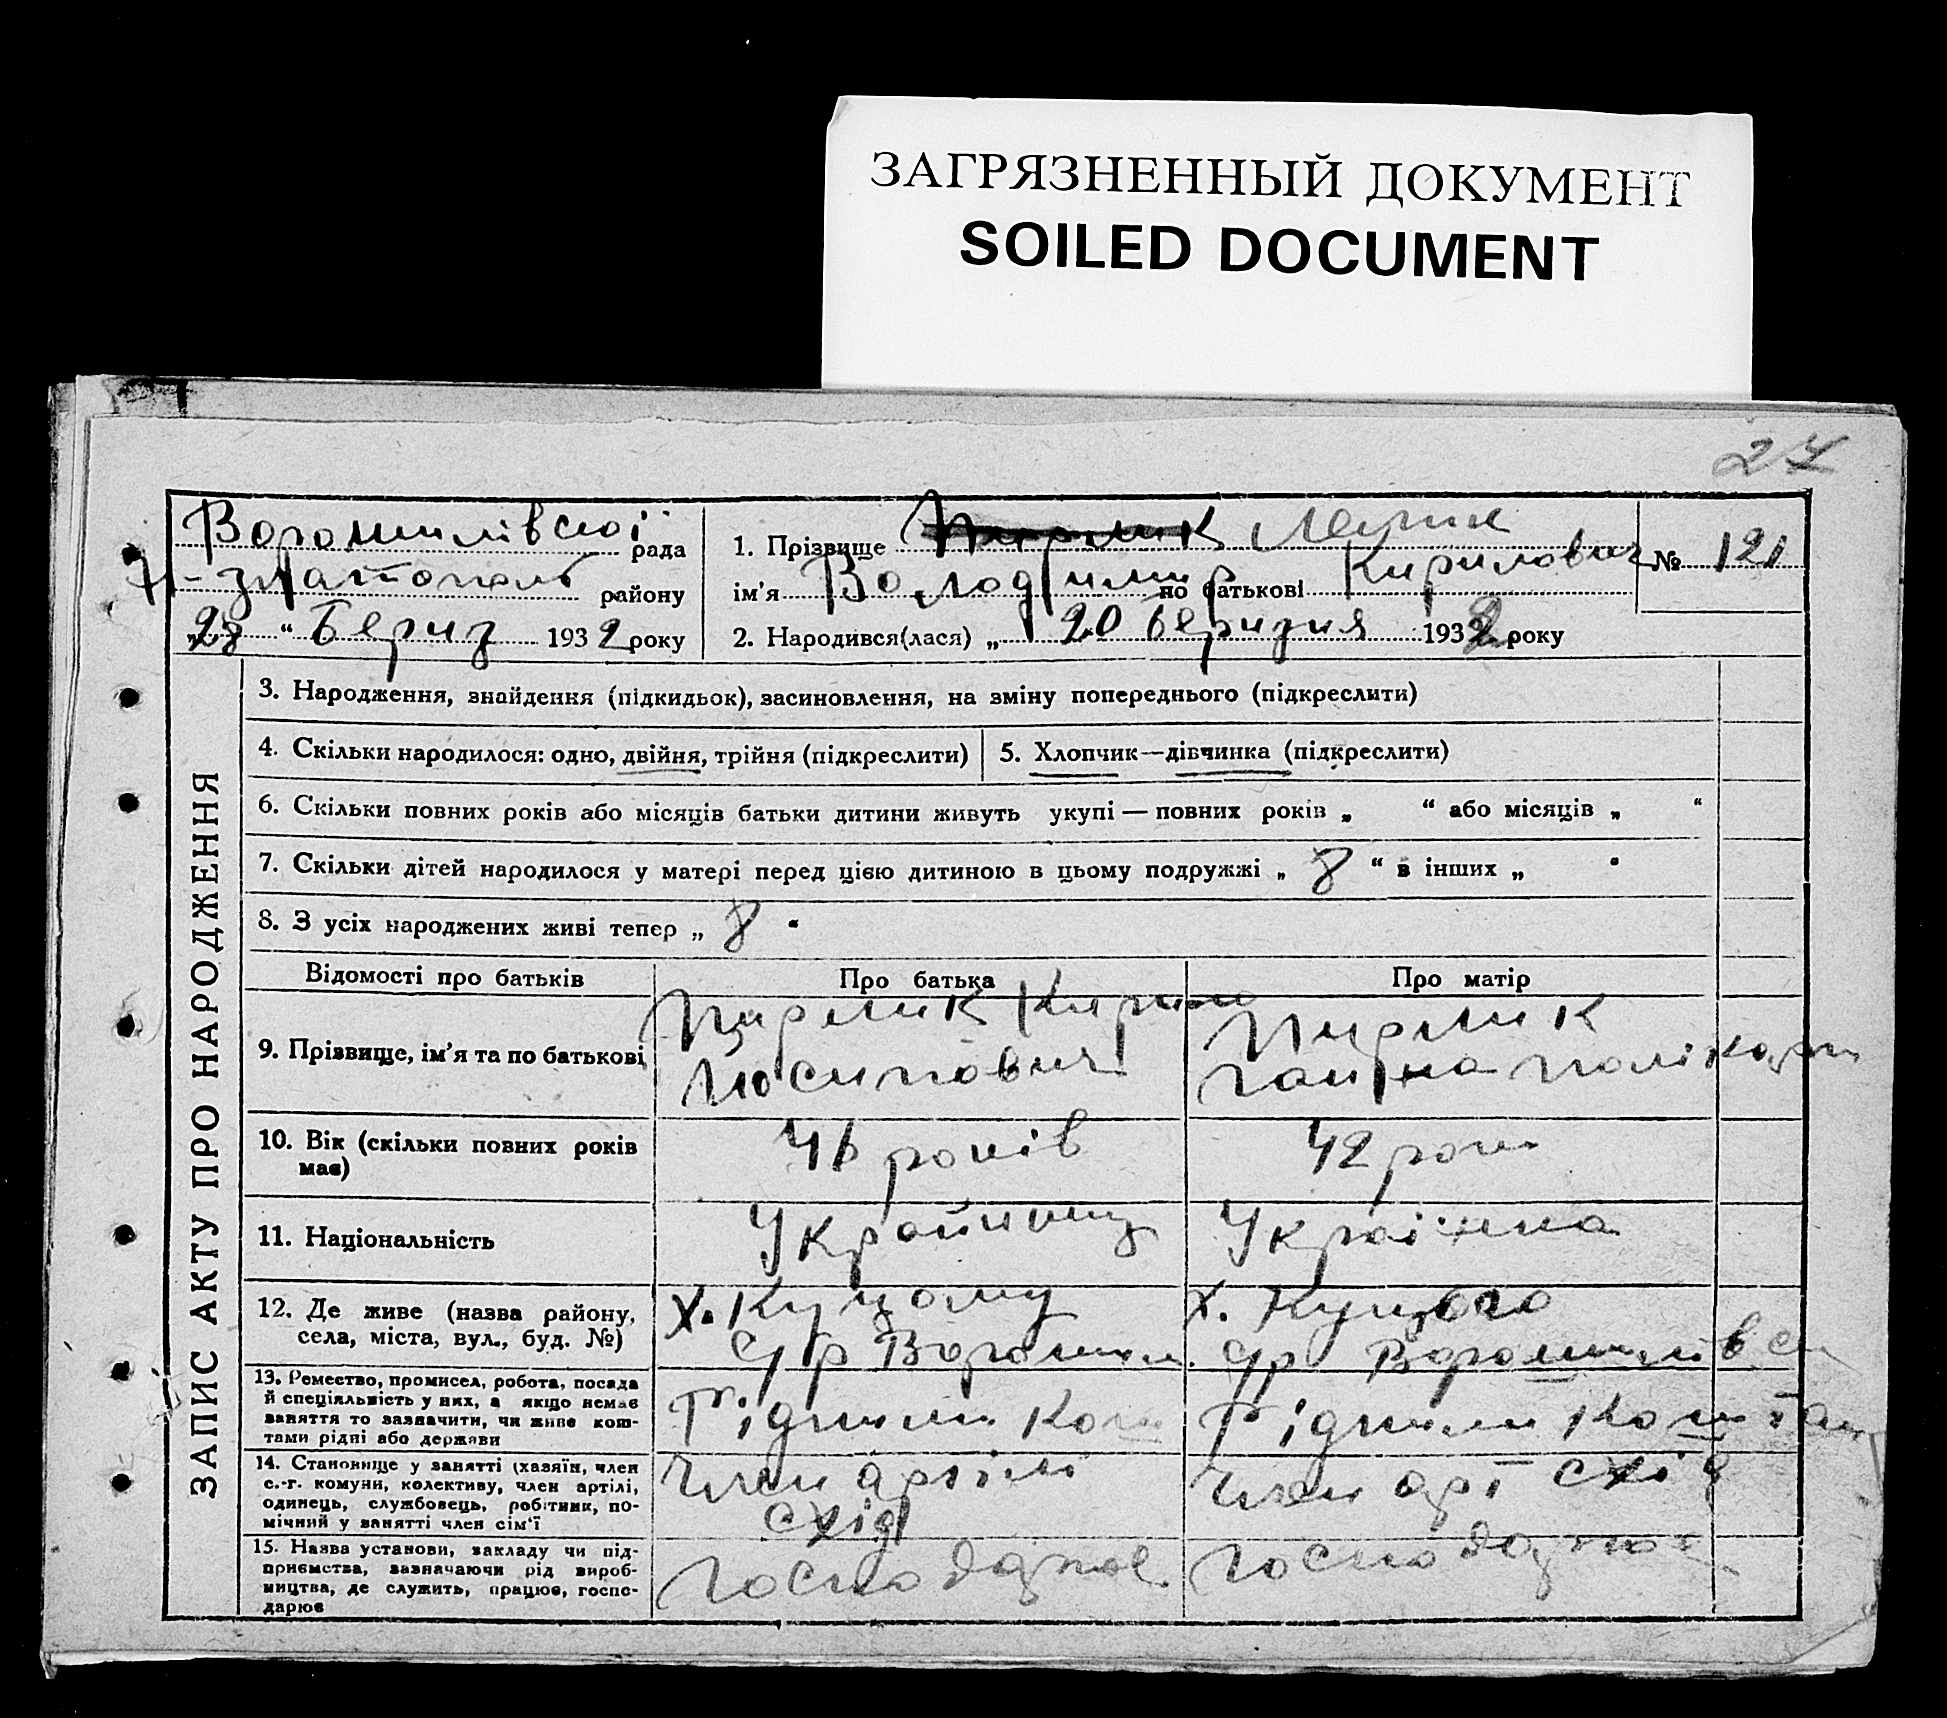 ЗАГРЯЗНЕННЫЙ ДОКУМЕНТ
SOILED DOCUMENT
27
Ворошилівської рада
Н-златополь району
„23“ Берез 1932 року
1. Прізвище
ім'я Володимир по батькові Кирилович
№ 121
2. Народився(лася) „20 березня 1932 року
ЗАПИС АКТУ ПРО НАРОДЖЕННЯ
3. Народження, знайдення (підкидьок), засиновлення, на зміну попереднього (підкреслити)
4. Скільки народилося: одно, двійня, трійня (підкреслити)
5. Хлопчик—дівчинка (підкреслити)
6. Скільки повних років або місяців батьки дитини живуть укупі — повних років „ “ або місяців „ “
7. Скільки дітей народилося у матері перед цією дитиною в цьому подружжі „ 8 “ в інших „ “
8. З усіх народжених живі тепер „ 8 “
Відомості про батьків
Про батька
Про матір
9. Прізвище, ім'я та по батькові
Пирлик Кирило
Йосипович
Пирлик
Ганна Полікарп
10. Вік (скільки повних років
має)
46 років
42 роки
11. Національність
Украйинец
Українка
12. Де живе (назва району,
села, міста, вул., буд. №)
х. Куцому
с/р Ворошил.
х. Куцого
с/р Ворошилівсь
13. Ремество, промисел, робота, посада
й спеціяльність у них, а якщо немає
заняття то зазначити, чи живе кош-
тами рідні або держави
Рідними кош
Рідними коштам
14. Становище у занятті (хазяїн, член
с.-г. комуни, колективу, член артілі,
одинець, службовець, робітник, по-
мічний у занятті член сім'ї
Член артілі
схід
Член арт схід
15. Назва установи, закладу чи під-
приємства, зазначаючи рід вироб-
ництва, де служить, працює, госпо-
дарює
Господарює
Господарює